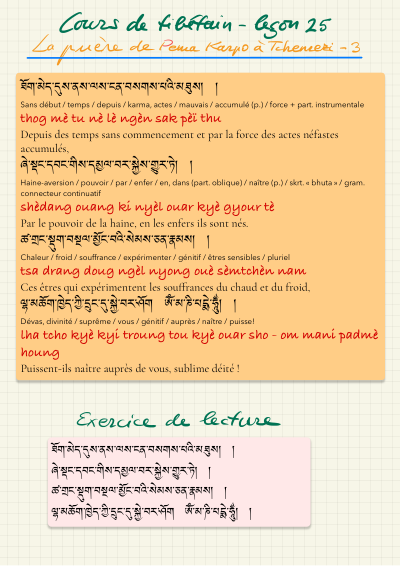 Cours de tibétain - leçon 25
La prière de Pema Karpo à Tchenrezi - 3
ཐོག་མེད་དུས་ནས་ལས་ངན་བསགས་པའི་མཐུས། །
Sans début / temps / depuis / karma, actes / mauvais / accumulé (p.) / force + part. instrumentale
thog mè tu nè lè ngèn sak pèï thu
Depuis des temps sans commencement et par la force des actes néfastes
accumulés,
ཞེ་སྡང་དབང་གིས་དམྱལ་བར་སྐྱེས་གྱུར་ཏེ། །
Haine-aversion / pouvoir / par / enfer / en, dans (part. oblique) / naître (p.) / skrt. « bhuta » / gram.
connecteur continuatif
shèdang ouang ki nyèl ouar kyè gyour tè
Par le pouvoir de la haine, en les enfers ils sont nés.
ཚ་གྲང་སྡུག་བསྔལ་མྱོང་བའི་སེམས་ཅན་རྣམས། །
Chaleur / froid / souffrance / expérimenter / génitif / êtres sensibles / pluriel
tsa drang doug ngèl nyong ouè sèmtchèn nam
Ces êtres qui expérimentent les souffrances du chaud et du froid,
ལྷ་མཆོག་ཁྱེད་ཀྱི་དྲུང་དུ་སྐྱེ་བར་ཤོག །ཨོཾ་མ་ཎི་པདྨེ་ཧཱུྃ། །
Dévas, divinité / suprême / vous / génitif / auprès / naître / puisse!
lha tcho kyè kyi troung tou kyè ouar sho - om mani padmè
houng
Puissent-ils naître auprès de vous, sublime déité !
Exercice de lecture
ཐོག་མེད་དུས་ནས་ལས་ངན་བསགས་པའི་མཐུས། །
ཞེ་སྡང་དབང་གིས་དམྱལ་བར་སྐྱེས་གྱུར་ཏེ། །
ཚ་གྲང་སྡུག་བསྔལ་མྱོང་བའི་སེམས་ཅན་རྣམས། །
ལྷ་མཆོག་ཁྱེད་ཀྱི་དྲུང་དུ་སྐྱེ་བར་ཤོག །ཨོཾ་མ་ཎི་པདྨེ་ཧཱུྃ། །